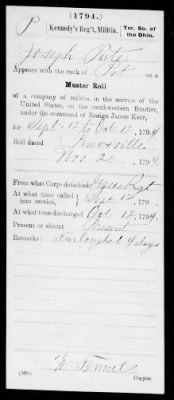 (1794.)
P Kennedy's Reg't, Militia. Ter. So. of the Ohio.
Joseph Pate
Appears with the rank of Pvt on a
Muster Roll
of a company of militia, in the service of the
United States, on the southwestern frontier,
under the command of Ensign James Kerr,
for Sept. 12 to Oct 12, 1794
Roll dated Knoxville
Nov 20, 1794.
From what Corps detached
At what time called into service, Sept 12, 179
At what time discharged Oct 12, 1794.
Present or absent Present
Remarks: Furloughed 4 days
W Fennel
Copyist.